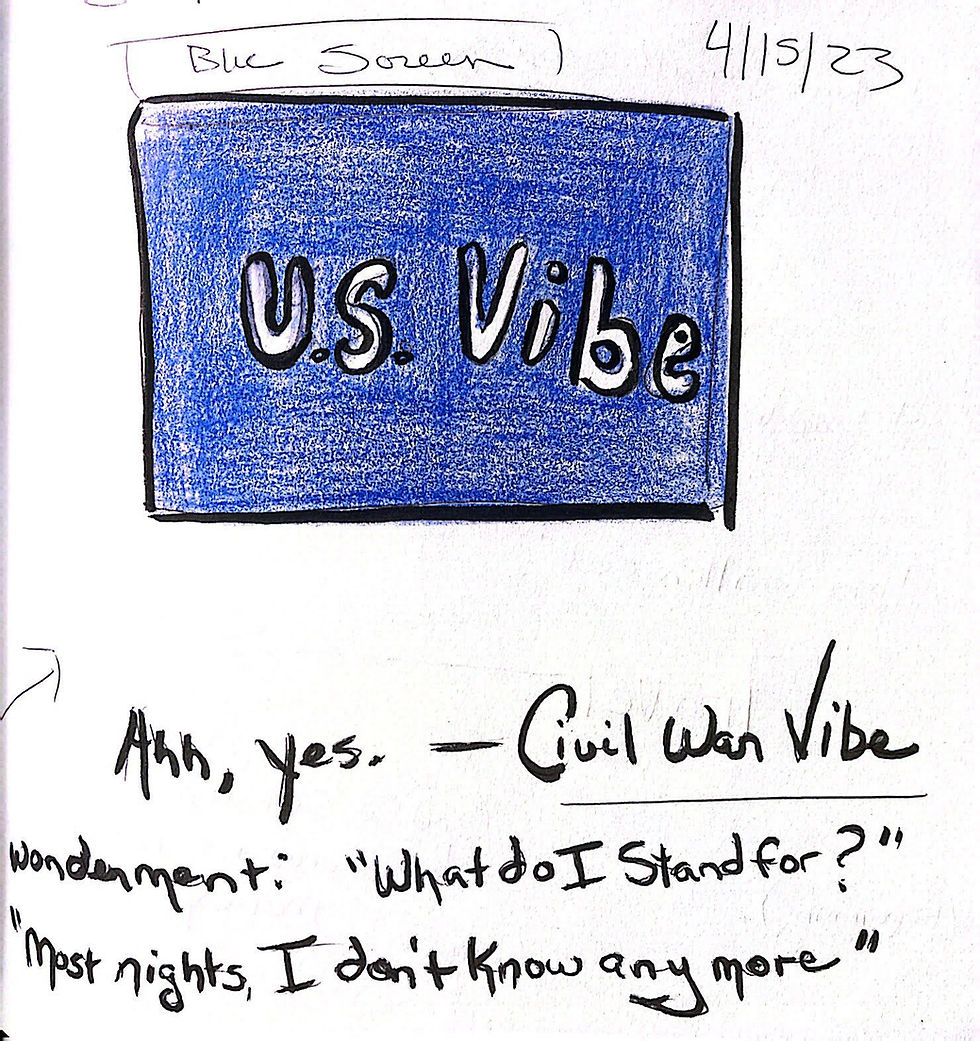 Blue Screen
4/15/23
U.S. Vibe
Ahh, yes. — Civil War Vibe
Wonderment: "What do I Stand for?"
"Most nights, I don't know any more"